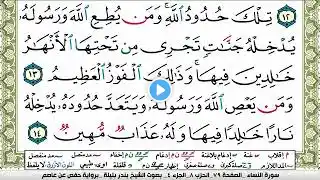 ١٢ تِلْكَ حُدُودُ ٱللَّهِ ۚ وَمَن يُطِعِ ٱللَّهَ وَرَسُولَهُۥ
يُدْخِلْهُ جَنَّٰتٍ تَجْرِى مِن تَحْتِهَا ٱلْأَنْهَٰرُ
خَٰلِدِينَ فِيهَا ۚ وَذَٰلِكَ ٱلْفَوْزُ ٱلْعَظِيمُ ١٣
وَمَن يَعْصِ ٱللَّهَ وَرَسُولَهُۥ وَيَتَعَدَّ حُدُودَهُۥ يُدْخِلْهُ
نَارًا خَٰلِدًا فِيهَا وَلَهُۥ عَذَابٌ مُّهِينٌ ١٤
سورة النساء . الصفحة ٧٩ . الجزء ٤ . بصوت الشيخ بندر بليلة . برواية حفص عن عاصم